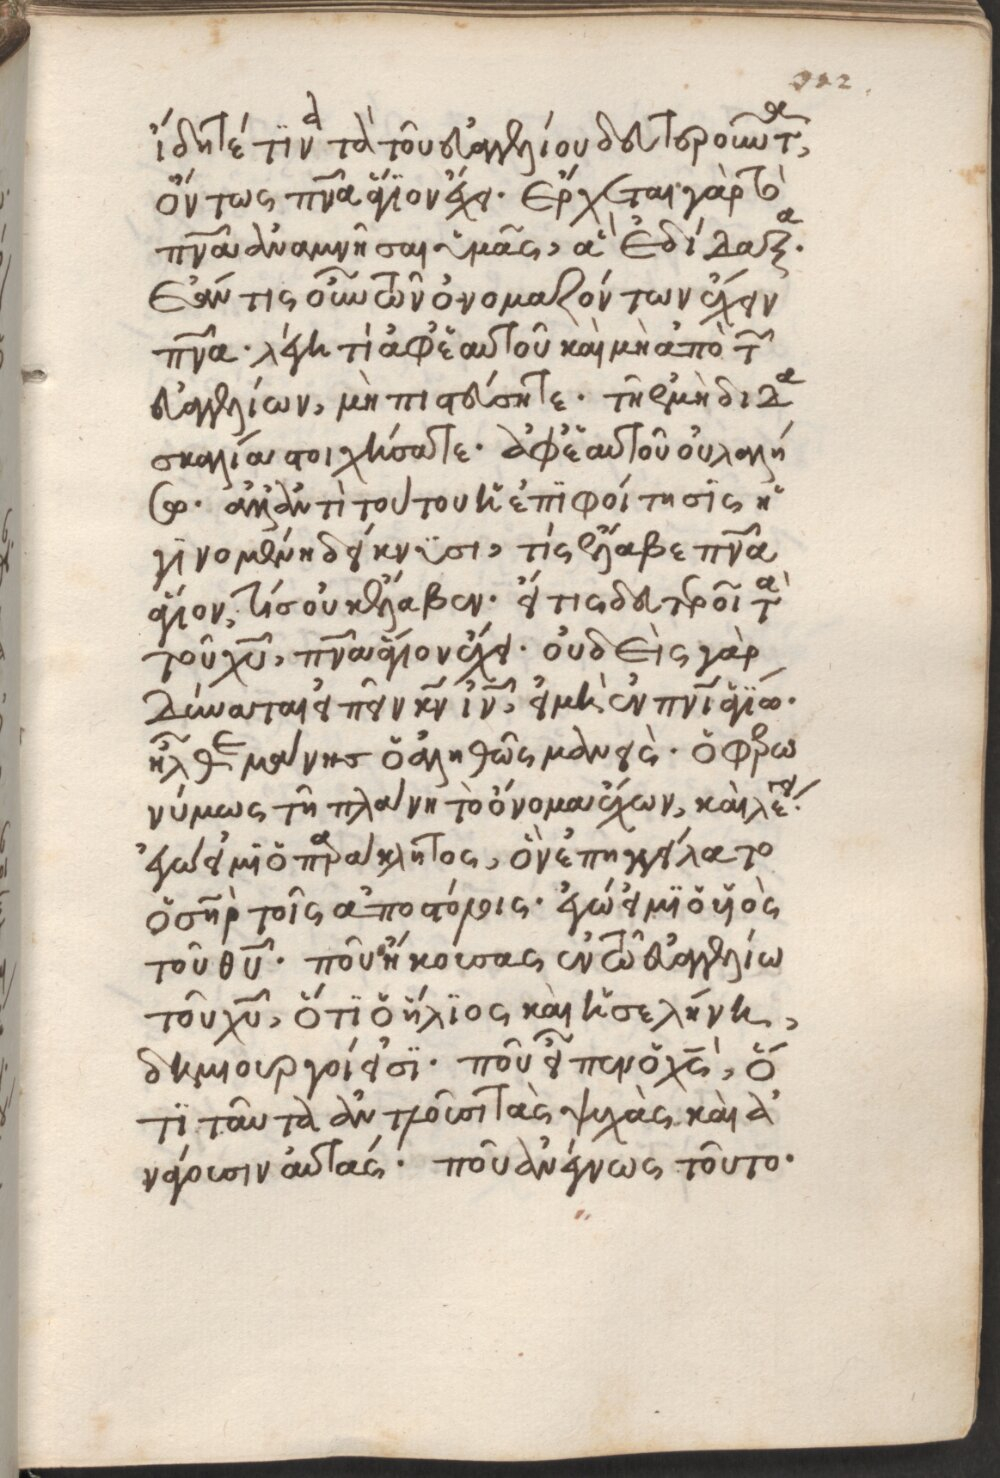 ἴδητέ τϊνα τὰ τοῦ εὐαγγελίου δευτεροῦντ,
ὄντως πνᾶ ἅγϊον ἔχει· Ἔρχεται γὰρ τὸ
πνᾶ ἀναμνῆσαι ὑμᾶς, ἃ ἐδίδαξα·
Ἐάν τις οὖν τῶν ὀνομαζόντων ἔχειν
πνᾶ· λέγη τὶ ἀφ' ἑαυτοῦ καὶ μὴ ἀπὸ τ
εὐαγγελίων, μὴ πιστεύσητε· τῆ ἐμῆ διδα
σκαλία στοιχήσατε· ἀφ' ἑαυτοῦ οὐ λαλή
σω· ἀλλ' ἀντὶ τούτου ἡ ἐπϊφοίτησϊς ἡ
γϊνομένη δείκνϋσι, τίς ἔλαβε πνᾶ
ἅγιον, τίς οὐκ ἔλαβεν· εἴ τις δευτεροῖ τὰ
τοῦ χῦ, πνᾶ ἅγιον ἔχει· οὐδεὶς γὰρ
δύναται εἰπεῖν κν ιν, εἰ μὴ ἐν πνι ἁγίω·
ἦλθε μάνης ὁ ἀληθῶς μανεὶς· ὁ φερω
νύμως τῆ πλάνη τὸ ὄνομα ἔχων, καὶ λέγει·
ἐγώ εἰμϊ ὁ παράκλητος, ὃν ἐπηγγείλατο
ὁ σηρ τοῖς ἀποστόλοις· ἐγώ εἰμϊ ὁ υἱὸς
τοῦ θῦ· ποῦ ἤκουσας ἐν τῶ εὐαγγελίω
τοῦ χῦ, ὅτϊ ὁ ἥλϊος καὶ ἡ σελήνη,
δημιουργοί εἰσϊ· ποῦ εἶπεν ὁ χς, ὅ
τϊ ταῦτα ἀντλοῦσι τὰς ψυχὰς καὶ ἀ
νάγουσιν αὐτάς· ποῦ ἀνέγνως τοῦτο·